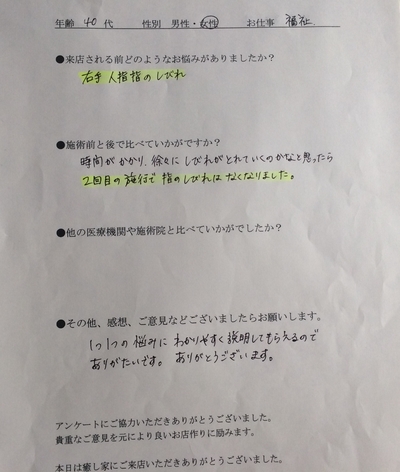 年齢 40 代 性別 男性・女性 お仕事 福祉
●来店される前どのようなお悩みがありましたか？
右手人指指のしびれ
●施術前と後で比べていかがですか？
時間がかかり、徐々にしびれがとれていくのかなと思ったら
2回目の施行で指のしびれはなくなりました。
●他の医療機関や施術院と比べていかがでしたか？
●その他、感想、ご意見などございましたらお願いします。
1つ1つの悩みにわかりやすく説明してもらえるので
ありがたいです。ありがとうございます。
アンケートにご協力いただきありがとうございました。
貴重なご意見を元により良いお店作りに励みます。
本日は癒し家にご来店いただきありがとうございました。